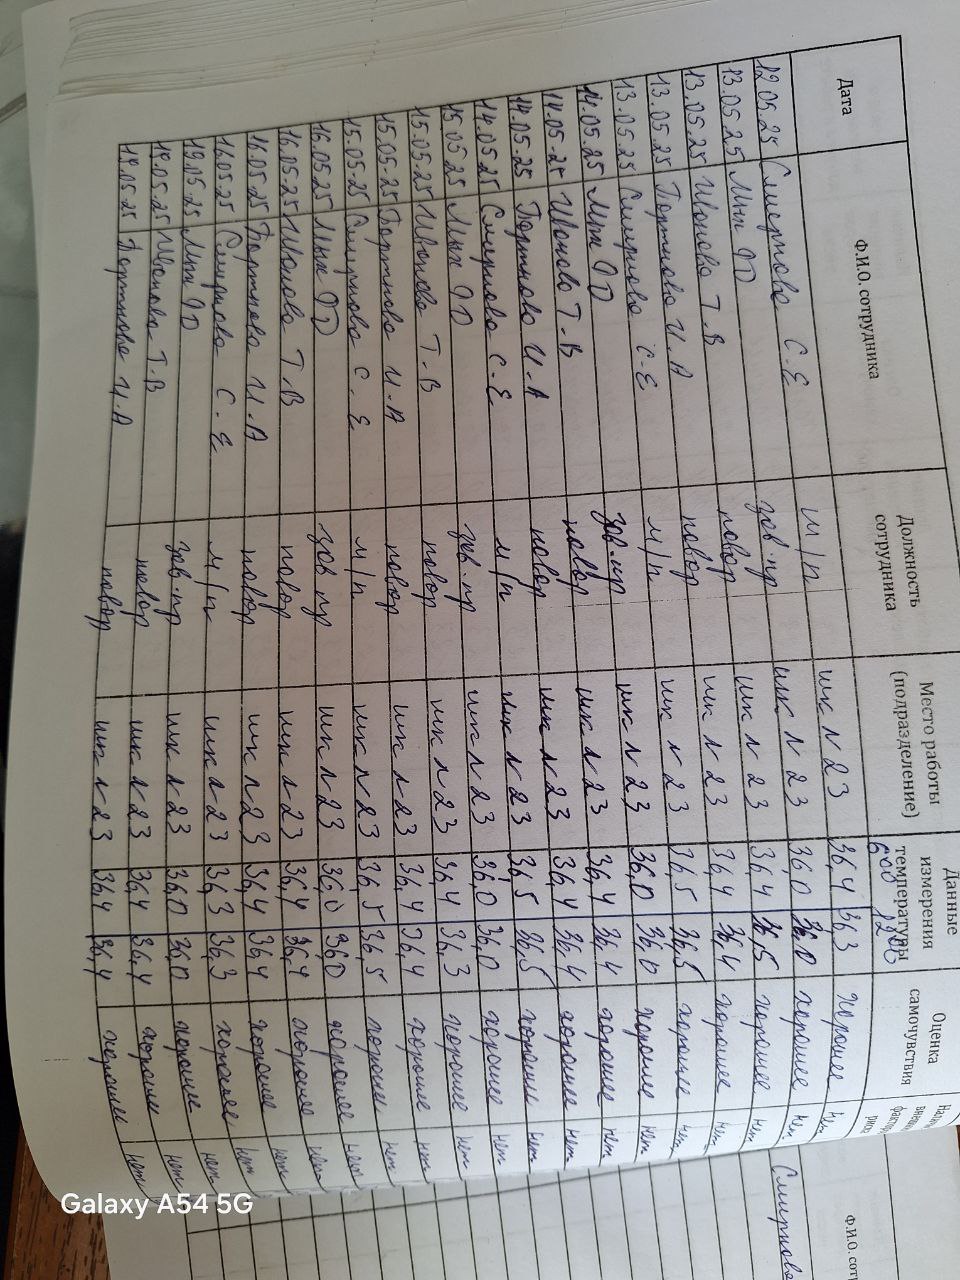 Дата Ф.И.О. сотрудника Должность сотрудника Место работы (подразделение) Данные измерения температуры Оценка самочувствия
12.05.25 Смирнова С.Е м/п шк N 23 36,4 36,3 хорошее нет
13.05.25 зав.пр шк N 23 36,0 36,0 хорошее нет
13.05.25 Ионова Т.В повар шк N 23 36,4 36,5 хорошее нет
13.05.25 Портнова И.А повар шк N 23 36,4 36,4 хорошее нет
13.05.25 Смирнова С.Е м/п шк N 23 36,5 36,5 хорошее нет
14.05.25 зав.пр шк N 23 36,0 36,0 хорошее нет
14.05.25 Ионова Т.В повар шк N 23 36,4 36,4 хорошее нет
14.05.25 Портнова И.А повар шк N 23 36,4 36,4 хорошее нет
14.05.25 Смирнова С.Е м/п шк N 23 36,5 36,5 хорошее нет
15.05.25 зав.пр шк N 23 36,0 36,0 хорошее нет
15.05.25 Ионова Т.В повар шк N 23 36,4 36,3 хорошее нет
15.05.25 Портнова И.А повар шк N 23 36,4 36,4 хорошее нет
15.05.25 Смирнова С.Е м/п шк N 23 36,5 36,5 хорошее нет
16.05.25 зав пр шк N 23 36,0 36,0 хорошее нет
16.05.25 Ионова Т.В повар шк N 23 36,4 36,4 хорошее нет
16.05.25 Портнова И.А повар шк N 23 36,4 36,4 хорошее нет
16.05.25 Смирнова С.Е м/п шк N 23 36,3 36,3 хорошее нет
19.05.25 зав.пр шк N 23 36,0 36,0 хорошее нет
19.05.25 Ионова Т.В повар шк N 23 36,4 36,4 хорошее нет
19.05.25 Портнова И.А повар шк N 23 36,4 36,4 хорошее нет
Смирнова
Galaxy A54 5G